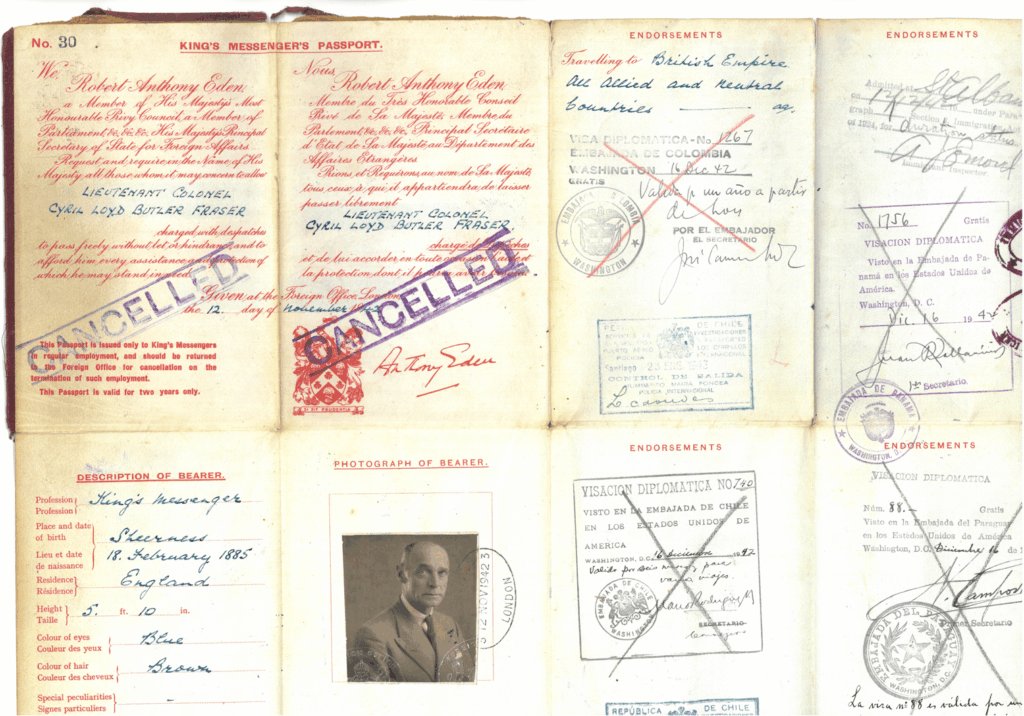 No. 30
KING'S MESSENGER'S PASSPORT.
We,
Robert Anthony Eden,
a Member of His Majesty's Most
Honourable Privy Council, a Member of
Parliament &c, &c, &c. His Majesty's Principal
Secretary of State for Foreign Affairs.
Request and require, in the Name of His
Majesty, all those whom it may concern to allow
LIEUTENANT COLONEL
CYRIL LOYD BUTLER FRASER
charged with despatches
to pass freely without let or hindrance, and to
afford him every assistance and protection of
which he may stand in need.
Nous,
Robert Anthony Eden,
Membre du Très Honorable Conseil
Privé de Sa Majesté, Membre du
Parlement &c, &c, &c, Principal Secrétaire
d'Etat de Sa Majesté au Département des
Affaires Etrangères.
Prions et Requérons, au nom de Sa Majesté,
tous ceux à qui il appartiendra de laisser
passer librement
LIEUTENANT COLONEL
CYRIL LOYD BUTLER FRASER
chargé de dépêches
et de lui accorder en toute occasion l'aide et
la protection dont il pourra avoir besoin.
Given at the Foreign Office, London,
the 12. day of November
CANCELLED
CANCELLED
This Passport is issued only to King's Messengers
in regular employment, and should be returned
to the Foreign Office for cancellation on the
termination of such employment.
This Passport is valid for two years only.
SI SIT PRUDENTIA
Anthony Eden
ENDORSEMENTS
Travelling to British Empire
All Allied and neutral
Countries
VISA DIPLOMATICA - No. 1267
EMBAJADA DE COLOMBIA
WASHINGTON 16 Dic 42
GRATIS
Valida p un año a partir
de hoy
POR EL EMBAJADOR
EL SECRETARIO
EMBAJADA DE COLOMBIA
WASHINGTON
DE CHILE
Santiago
CONTROL DE SALIDA
POLICIA INTERNACIONAL
ENDORSEMENTS
Admitted at St Albans
under Para-
graph Section Immigration Act
of 1924, for duration status
Immigrant Inspector.
No. 1756 Gratis
VISACION DIPLOMATICA
Visto en la Embajada de Pa-
namá en los Estados Unidos de
América.
Washington, D. C.
Dic. 16 1942
1er Secretario.
EMBAJADA DE PANAMA
WASHINGTON, D.C.
DESCRIPTION OF BEARER.
Profession
Profession
King's Messenger
Place and date
of birth
Sheerness
Lieu et date
de naissance
18. February 1885
Residence
Résidence
England
Height
Taille
5. ft. 10 in.
Colour of eyes
Couleur des yeux
Blue
Colour of hair
Couleur des cheveux
Brown
Special peculiarities
Signes particuliers
-
PHOTOGRAPH OF BEARER.
12 NOV 1942
LONDON
ENDORSEMENTS
VISACION DIPLOMATICA NO 740
VISTO EN LA EMBAJADA DE CHILE
EN LOS ESTADOS UNIDOS DE
AMERICA
WASHINGTON, D.C. 16 diciembre 1942
Valido por seis meses para
varios viajes.
EMBAJADA DE CHILE
WASHINGTON
SECRETARIO
REPÚBLICA DE CHILE
ENDORSEMENTS
VISACION DIPLOMATICA
Núm. 88.- Gratis
Visto en la Embajada del Paraguay
en los Estados Unidos de América
Washington, D.C. Diciembre 16 de 1
Campos
Primer Secretario
EMBAJADA DEL PARAGUAY
WASHINGTON, D.C.
La visa nº 88 es válida por un